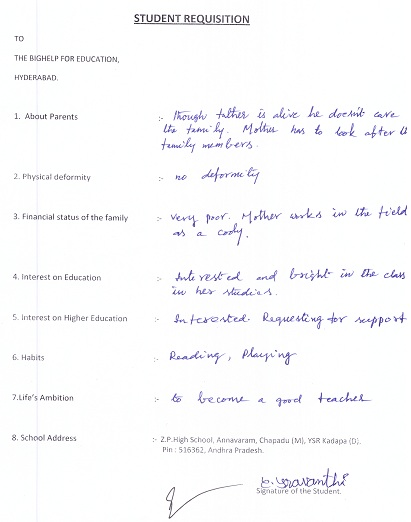 STUDENT REQUISITION
TO
THE BIGHELP FOR EDUCATION,
HYDERABAD.
1. About Parents :- Though father is alive he doesn't care
the family. Mother has to look after
family members.
2. Physical deformity :- no deformity
3. Financial status of the family :- very poor. Mother works in the field
as a cooly.
4. Interest on Education :- Interested and bright in the class
in her studies.
5. Interest on Higher Education :- Interested. Requesting for support
6. Habits :- Reading, Playing
7.Life's Ambition :- to become a good teacher
8. School Address :- Z.P.High School, Annavaram, Chapadu (M), YSR Kadapa (D).
Pin : 516362, Andhra Pradesh.
Sravanthi
Signature of the Student.